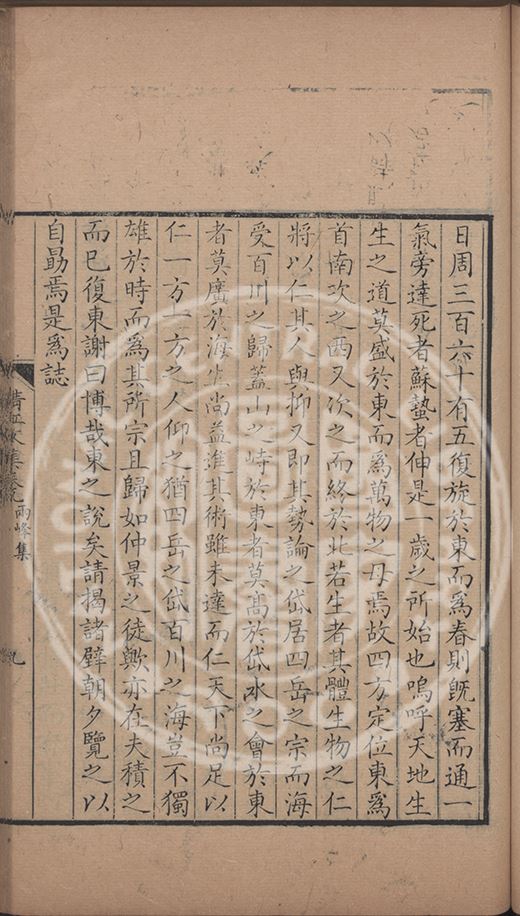 日周三百六十有五復旋於東而爲春則旣塞而通一
氣旁達死者蘇蟄者伸是一歲之所始也嗚呼天地生
生之道莫盛於東而爲萬物之母焉故四方定位東爲
首南次之西又次之而終於北若生者其體生物之仁
將以仁其人與抑又即其勢論之岱居四岳之宗而海
受百川之歸蓋山之峙於東者莫髙於岱水之會於東
者莫廣於海生尚益進其術雖未達而仁天下尚足以
仁一方一方之人仰之猶四岳之岱百川之海豈不獨
雄於時而爲其所宗且歸如仲景之徒歟亦在夫積之
而巳復東謝曰博哉東之說矣請揭諸壁朝夕覽之以
自勗焉是爲誌
兩峰集